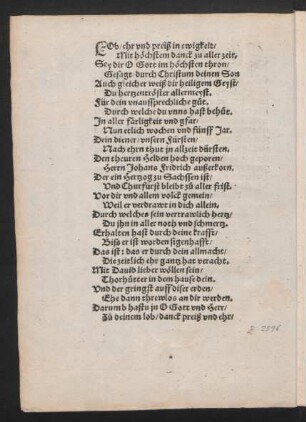 LOb/ ehr vnd preiß in ewigkeit/
Mit höchstem danck zu aller zeit,
Sey dir O Gott im höchsten thron/
Gesagt/ durch Christum deinen Son
Auch gleicher weiß dir heiligem Geyst/
Du hertzentröster allermeyst.
Für dein vnaussprechliche güt.
Durch welche du vnns hast behüt.
In aller färligkeit vnd gfar/
Nun etlich wochen vnd fünff Jar.
Dein diener/ vnsern Fürsten/
Nach ehrn thut jn allzeit dürsten.
Den theuren Helden hoch geporen/
Herrn Johans Fridrich außerkorn.
Der ein Hertzog zu Sachssen ist/
Vnd Churfürst bleibt zü aller frist.
Vor dir vnd allem volck gemein/
Weil er verdrawt in dich allein,
Durch welches sein vertrawlich hertz/
Du jhn in aller noth vnd schmertz.
Erhalten hast durch deine krafft/
Biß er ist worden sigenhafft:
Das ist: das er durch dein allmacht/
Die zeitlich ehr gantz hat veracht.
Mit Dauid lieber wöllen sein/
Thorhütter in dem hause dein.
Vnd der gringst auff diser erden/
Ehe dann threwloß an dir werden.
Darumb hastu jn O Gott vnd Herr/
Zü deinem lob/ danck preiß vnd ehr/